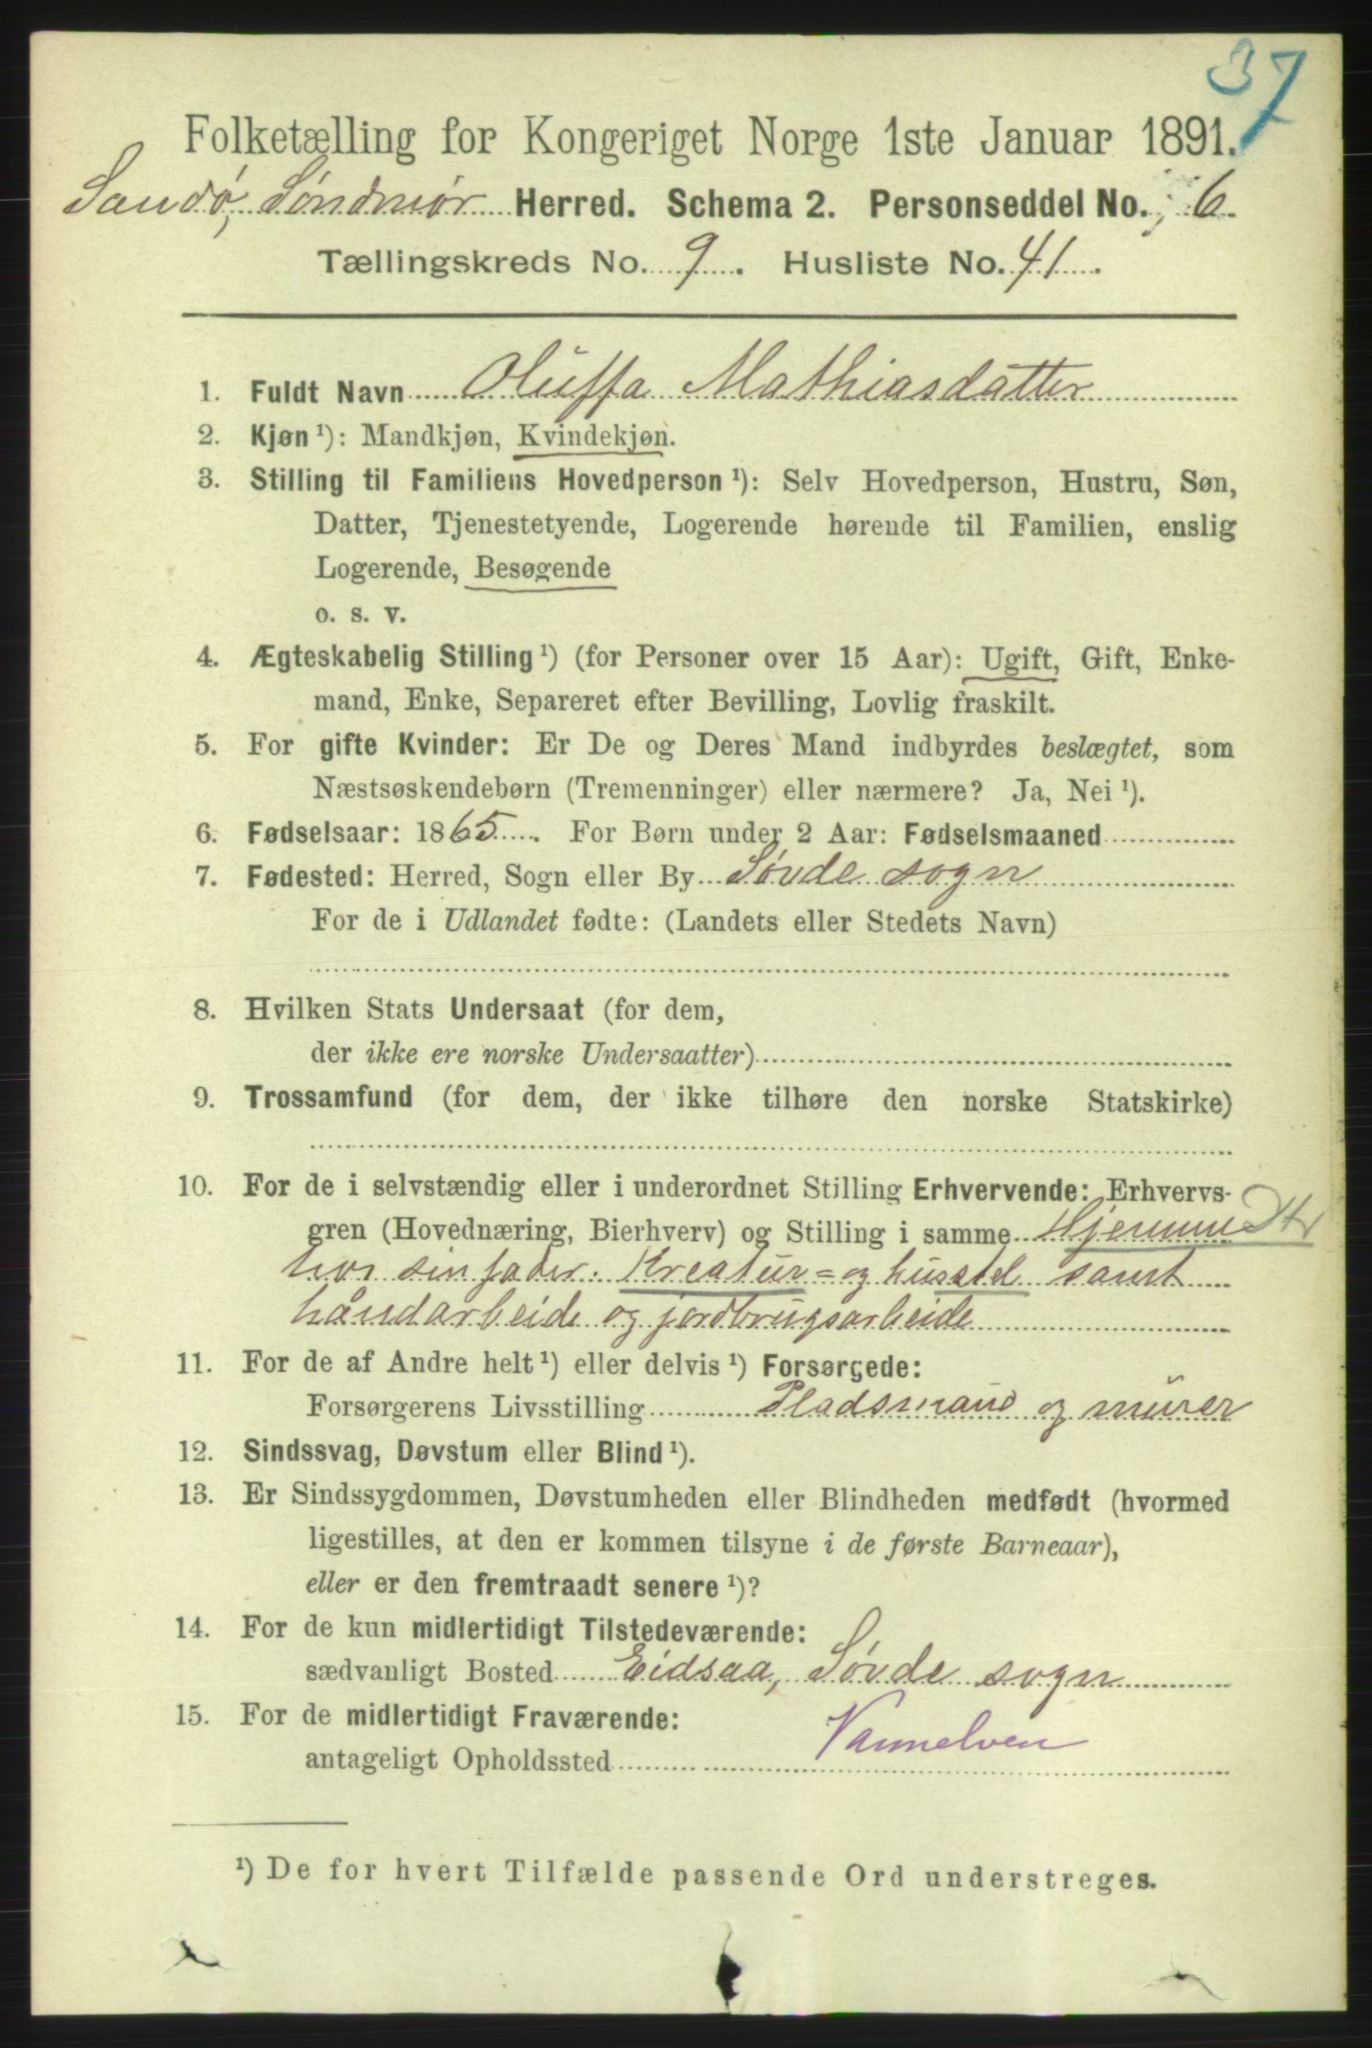 37
Folketælling for Kongeriget Norge 1ste Januar 1891.
Sandø, Søndmør Herred. Schema 2. Personseddel No. 6.
Tællingskreds No. 9. Husliste No. 41.
1. Fuldt Navn Oluffa Mathiasdatter
2. Kjøn ¹): Mandkjøn, Kvindekjøn.
3. Stilling til Familiens Hovedperson ¹): Selv Hovedperson, Hustru, Søn,
Datter, Tjenestetyende, Logerende hørende til Familien, enslig
Logerende, Besøgende
o. s. v.
4. Ægteskabelig Stilling ¹) (for Personer over 15 Aar): Ugift, Gift, Enke-
mand, Enke, Separeret efter Bevilling, Lovlig fraskilt.
5. For gifte Kvinder: Er De og Deres Mand indbyrdes beslægtet, som
Næstsøskendebørn (Tremenninger) eller nærmere? Ja, Nei ¹).
6. Fødselsaar: 1865. For Børn under 2 Aar: Fødselsmaaned
7. Fødested: Herred, Sogn eller By Søvde sogn
For de i Udlandet fødte: (Landets eller Stedets Navn)
8. Hvilken Stats Undersaat (for dem,
der ikke ere norske Undersaatter)
9. Trossamfund (for dem, der ikke tilhøre den norske Statskirke)
10. For de i selvstændig eller i underordnet Stilling Erhvervende: Erhvervs-
gren (Hovednæring, Bierhverv) og Stilling i samme Hjemme Dtr
hos sin fader. Kreatur= og husstel samt
håndarbeide og jordbrugsarbeide
11. For de af Andre helt ¹) eller delvis ¹) Forsørgede:
Forsørgerens Livsstilling Pladsmand og murer
12. Sindssvag, Døvstum eller Blind ¹).
13. Er Sindssygdommen, Døvstumheden eller Blindheden medfødt (hvormed
ligestilles, at den er kommen tilsyne i de første Barneaar),
eller er den fremtraadt senere ¹)?
14. For de kun midlertidigt Tilstedeværende:
sædvanligt Bosted Eidsaa, Søvde sogn
15. For de midlertidigt Fraværende:
antageligt Opholdssted Vannelven
¹) De for hvert Tilfælde passende Ord understreges.